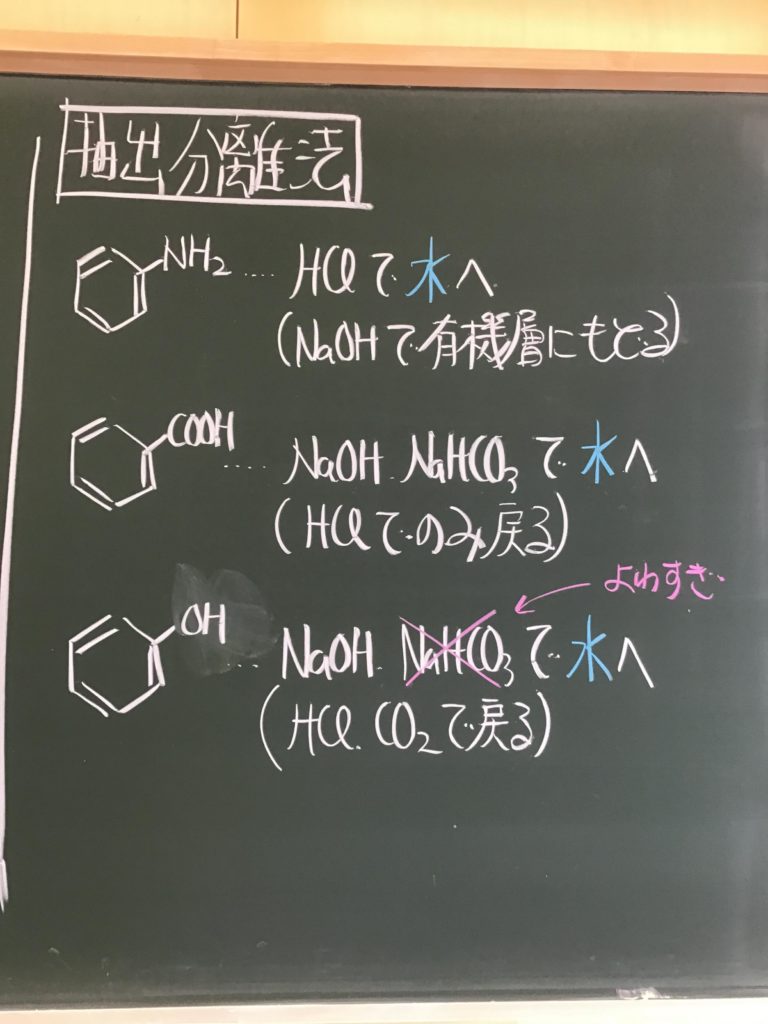 抽出分離法
NH₂ ‥‥ HClで水へ
(NaOHで有機層にもどる)
COOH ‥‥ NaOH NaHCO₃で水へ
(HClでのみ戻る)
よわすぎ
OH ‥‥ NaOH NaHCO₃で水へ
(HCl. CO₂で戻る)